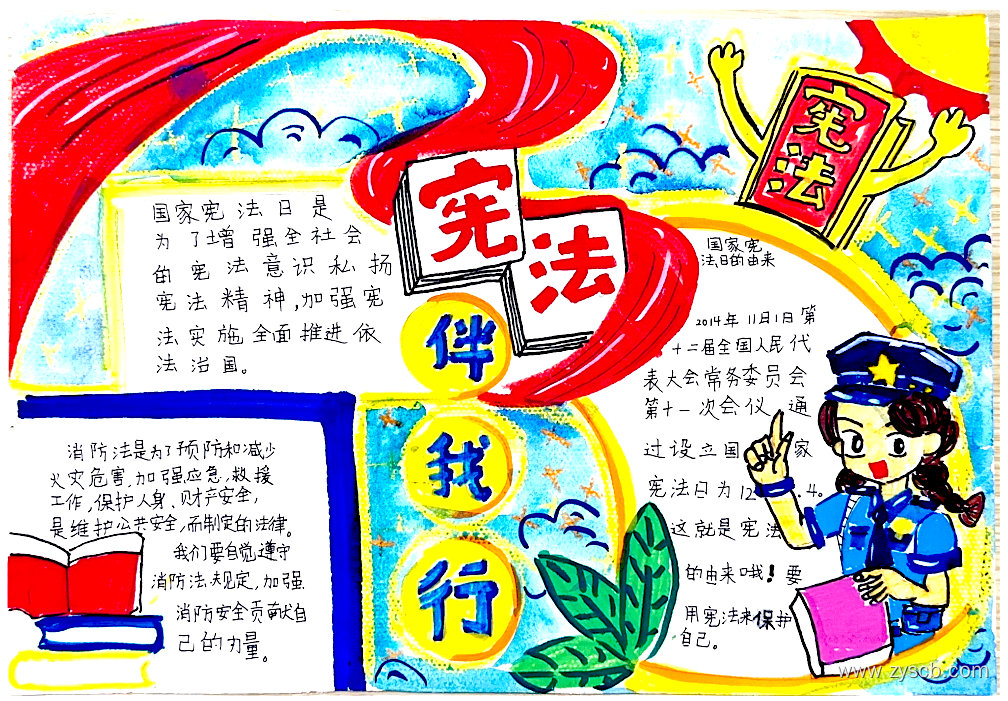 宪法
伴
我
行
宪法
国家宪法日是
为了增强全社会
的宪法意识私扬
宪法精神,加强宪
法实施全面推进依
法治国。
消防法是为了预防和减少
火灾危害,加强应急,救援
工作,保护人身、财产安全,
是维护公共安全,而制定的法律。
我们要自觉遵守
消防法规定,加强
消防安全贡献自
己的力量。
国家宪
法日的由来
2014年11月1日第
十二届全国人民代
表大会常务委员会
第十一次会仪 通
过设立国 家
宪法日为12.4.
这就是宪法
的由来哦!要
用宪法来保护
自己。
www.zyscb.com